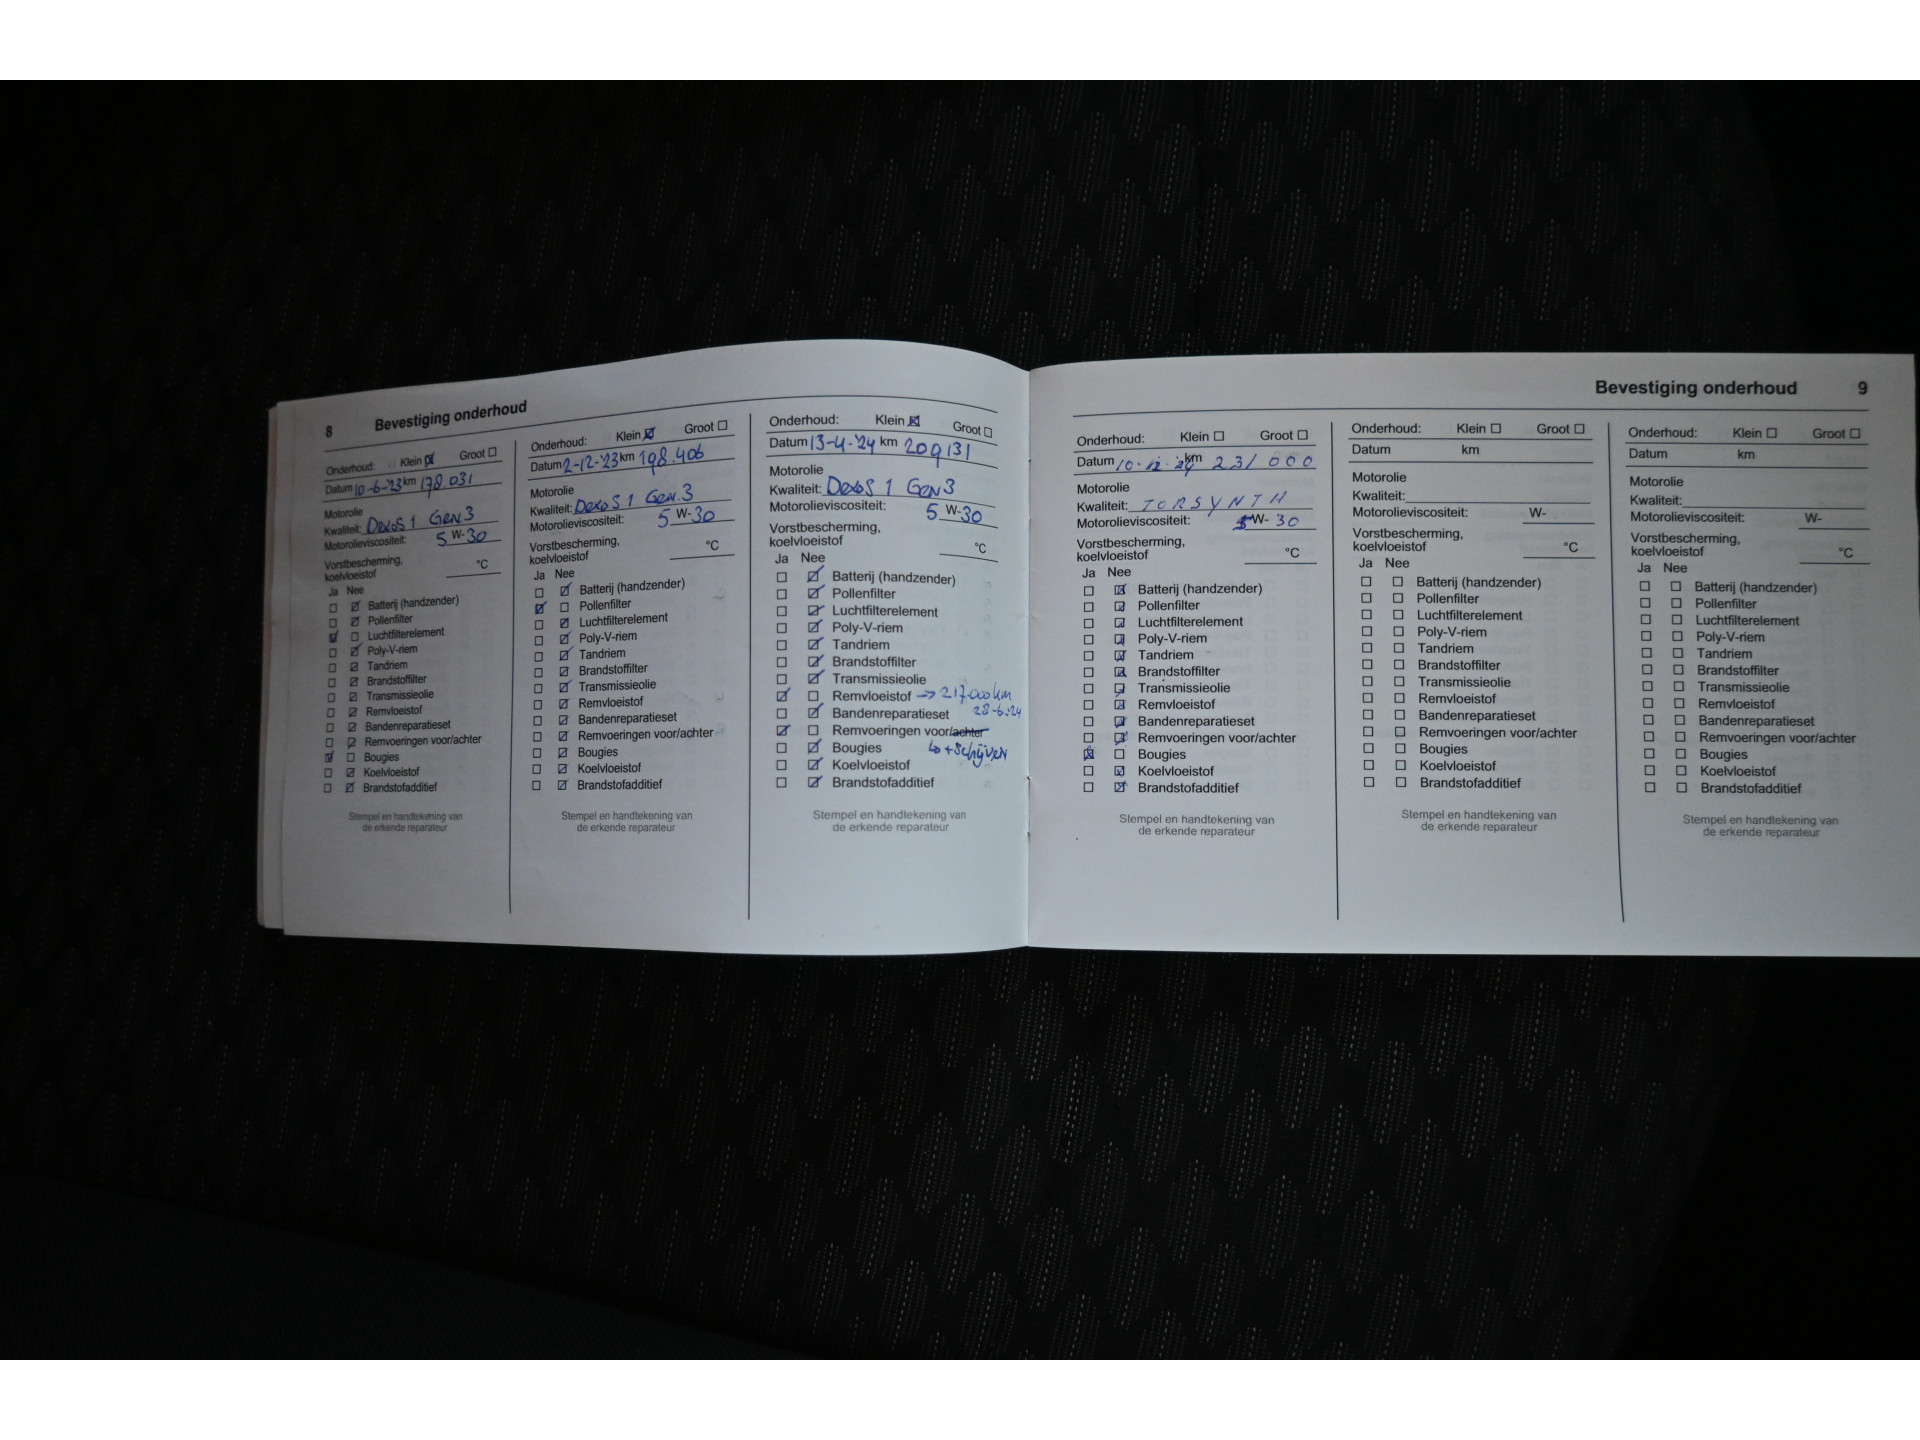 8 Bevestiging onderhoud
Onderhoud: Klein ☒ Groot ☐
Datum 10-6-'23 km 178.031
Motorolie
Kwaliteit: Dexos 1 Gen 3
Motorolieviscositeit: 5 W-30
Vorstbescherming,
koelvloeistof °C
Ja Nee
☐ ☑ Batterij (handzender)
☐ ☑ Pollenfilter
☑ ☐ Luchtfilterelement
☐ ☑ Poly-V-riem
☐ ☑ Tandriem
☐ ☑ Brandstoffilter
☐ ☑ Transmissieolie
☐ ☑ Remvloeistof
☐ ☑ Bandenreparatieset
☐ ☑ Remvoeringen voor/achter
☑ ☐ Bougies
☐ ☑ Koelvloeistof
☐ ☑ Brandstofadditief
Stempel en handtekening van
de erkende reparateur
Onderhoud: Klein ☒ Groot ☐
Datum 2-12-'23 km 198.406
Motorolie
Kwaliteit: Dexos 1 Gen.3
Motorolieviscositeit: 5 W-30
Vorstbescherming,
koelvloeistof °C
Ja Nee
☐ ☑ Batterij (handzender)
☑ ☐ Pollenfilter
☐ ☑ Luchtfilterelement
☐ ☑ Poly-V-riem
☐ ☑ Tandriem
☐ ☑ Brandstoffilter
☐ ☑ Transmissieolie
☐ ☑ Remvloeistof
☐ ☑ Bandenreparatieset
☐ ☑ Remvoeringen voor/achter
☐ ☑ Bougies
☐ ☑ Koelvloeistof
☐ ☑ Brandstofadditief
Stempel en handtekening van
de erkende reparateur
Onderhoud: Klein ☒ Groot ☐
Datum 13-4-'24 km 209131
Motorolie
Kwaliteit: Dexos 1 Gen 3
Motorolieviscositeit: 5 W-30
Vorstbescherming,
koelvloeistof °C
Ja Nee
☐ ☑ Batterij (handzender)
☐ ☑ Pollenfilter
☐ ☑ Luchtfilterelement
☐ ☑ Poly-V-riem
☐ ☑ Tandriem
☐ ☑ Brandstoffilter
☐ ☑ Transmissieolie
☑ ☐ Remvloeistof → 217.000 km
28-6-24
☐ ☑ Bandenreparatieset
☑ ☐ Remvoeringen voor/achter
☐ ☑ Bougies ↳ + Schijven
☐ ☑ Koelvloeistof
☐ ☑ Brandstofadditief
Stempel en handtekening van
de erkende reparateur
Bevestiging onderhoud 9
Onderhoud: Klein ☐ Groot ☐
Datum 10-12-'24 km 231000
Motorolie
Kwaliteit: TORSYNTH
Motorolieviscositeit: 5 W- 30
Vorstbescherming,
koelvloeistof °C
Ja Nee
☐ ☑ Batterij (handzender)
☐ ☑ Pollenfilter
☐ ☑ Luchtfilterelement
☐ ☑ Poly-V-riem
☐ ☑ Tandriem
☐ ☑ Brandstoffilter
☐ ☑ Transmissieolie
☐ ☑ Remvloeistof
☐ ☑ Bandenreparatieset
☐ ☑ Remvoeringen voor/achter
☒ ☐ Bougies
☐ ☑ Koelvloeistof
☐ ☑ Brandstofadditief
Stempel en handtekening van
de erkende reparateur
Onderhoud: Klein ☐ Groot ☐
Datum km
Motorolie
Kwaliteit:
Motorolieviscositeit: W-
Vorstbescherming,
koelvloeistof °C
Ja Nee
☐ ☐ Batterij (handzender)
☐ ☐ Pollenfilter
☐ ☐ Luchtfilterelement
☐ ☐ Poly-V-riem
☐ ☐ Tandriem
☐ ☐ Brandstoffilter
☐ ☐ Transmissieolie
☐ ☐ Remvloeistof
☐ ☐ Bandenreparatieset
☐ ☐ Remvoeringen voor/achter
☐ ☐ Bougies
☐ ☐ Koelvloeistof
☐ ☐ Brandstofadditief
Stempel en handtekening van
de erkende reparateur
Onderhoud: Klein ☐ Groot ☐
Datum km
Motorolie
Kwaliteit:
Motorolieviscositeit: W-
Vorstbescherming,
koelvloeistof °C
Ja Nee
☐ ☐ Batterij (handzender)
☐ ☐ Pollenfilter
☐ ☐ Luchtfilterelement
☐ ☐ Poly-V-riem
☐ ☐ Tandriem
☐ ☐ Brandstoffilter
☐ ☐ Transmissieolie
☐ ☐ Remvloeistof
☐ ☐ Bandenreparatieset
☐ ☐ Remvoeringen voor/achter
☐ ☐ Bougies
☐ ☐ Koelvloeistof
☐ ☐ Brandstofadditief
Stempel en handtekening van
de erkende reparateur